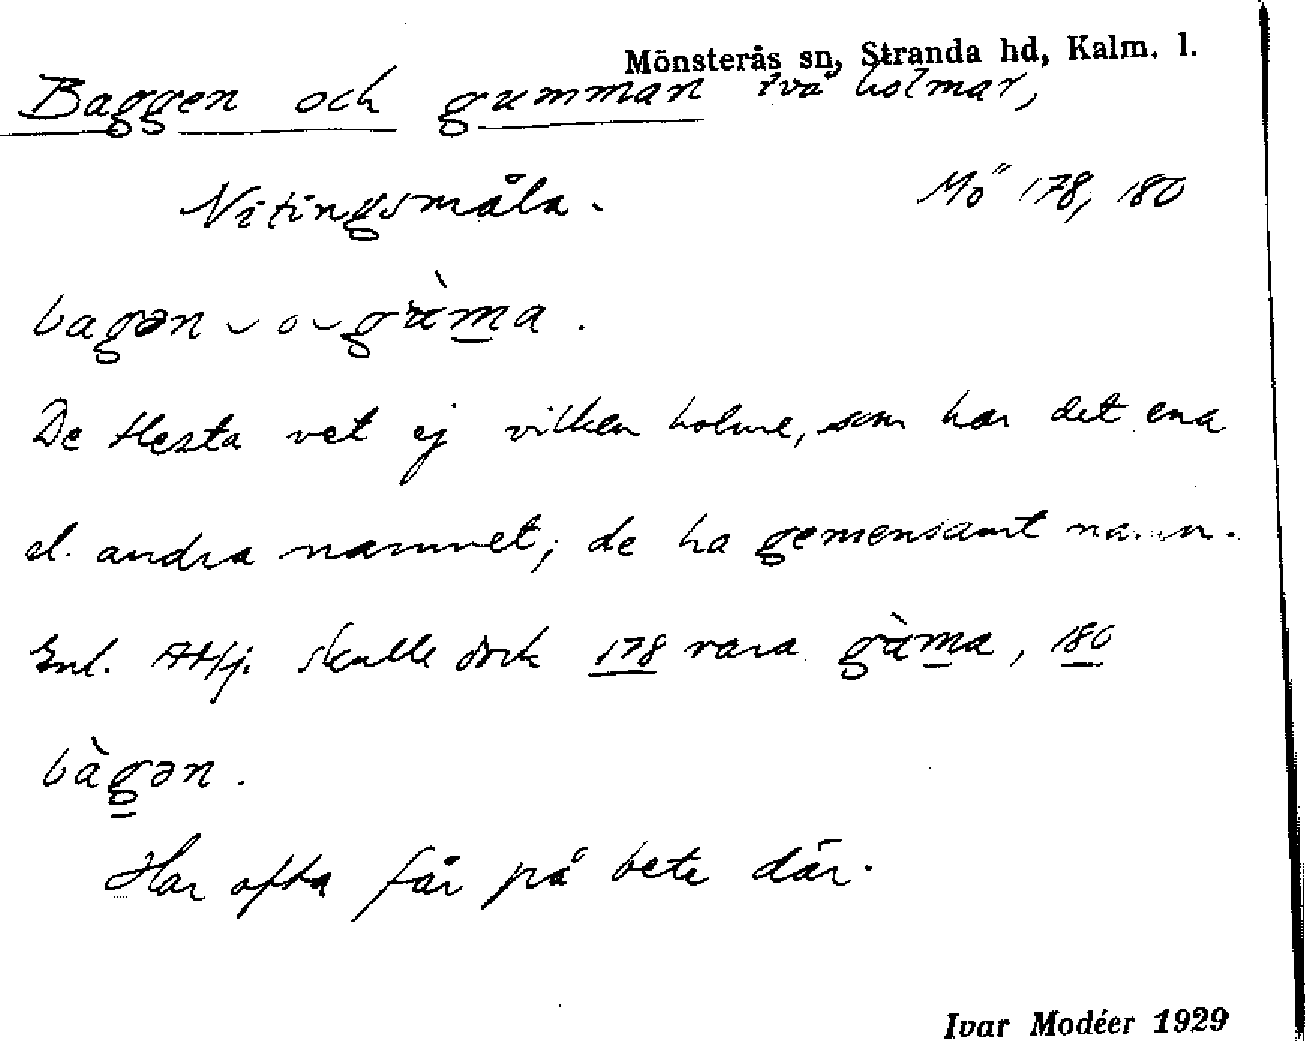 Mönsterås sn, Stranda hd, Kalm. l.
Baggen och gumman två holmar,
Nitingsmåla. Mö 178, 180
bagən ‿ o ‿ gàma.
De flesta vet ej vilken holme, som har det ena
el. andra namnet; de ha gemensamt namn.
Enl. skulle dock 178 vara gàma, 180
bàgən.
Har ofta får på bete där.
Ivar Modéer 1929